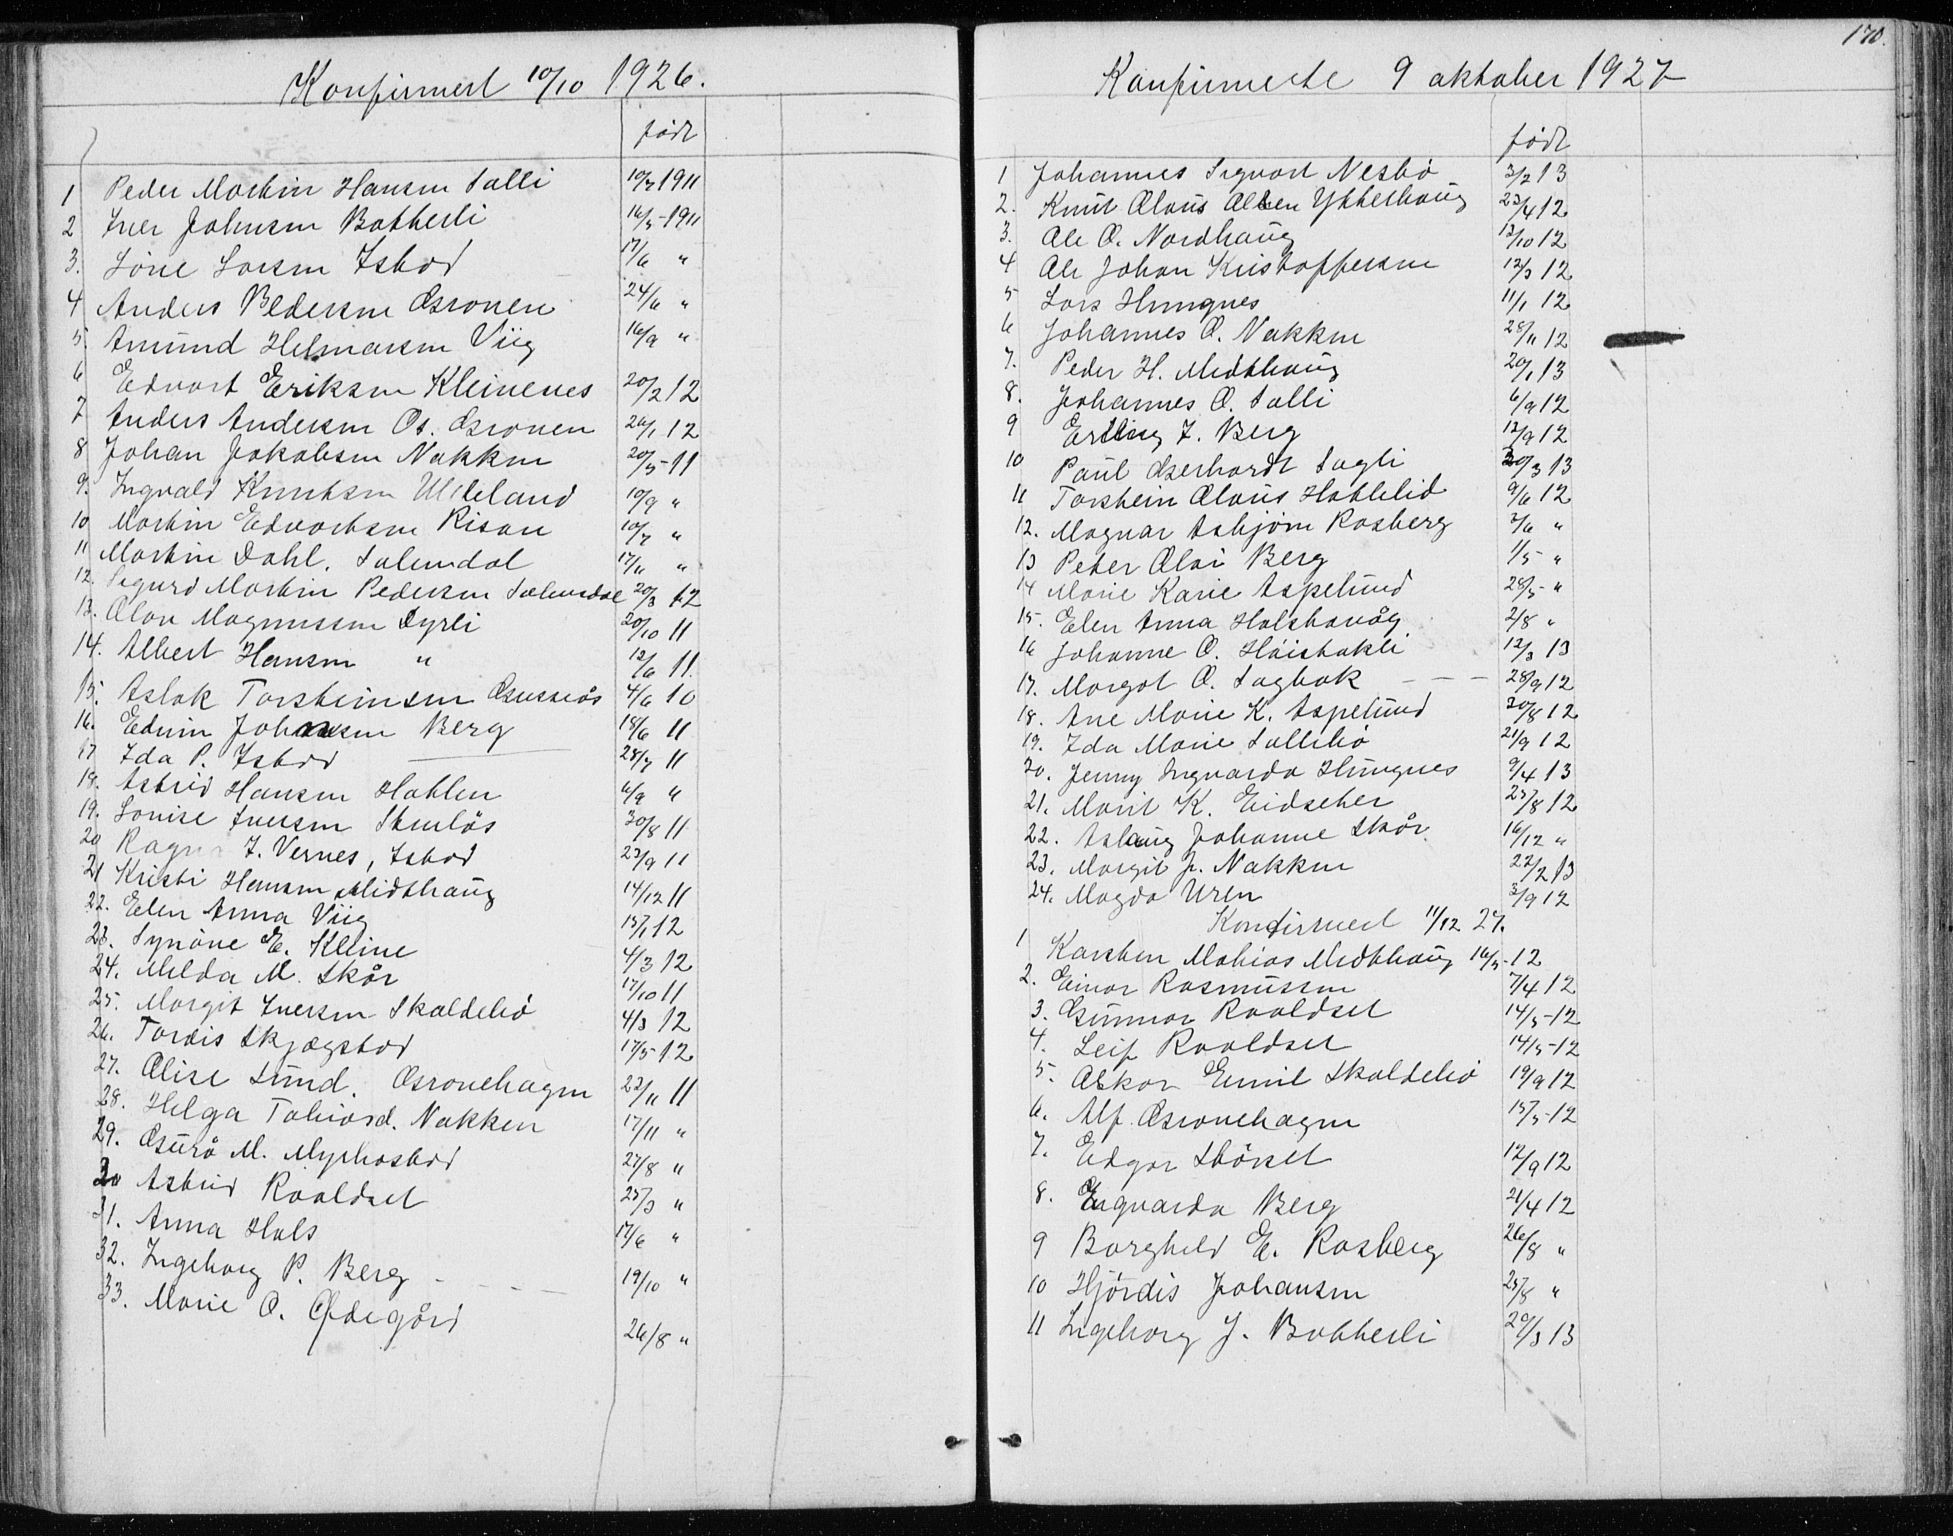 Konfirmert 10/10 1926.
født
1 Peder Martin Hansen Salli 10/7 1911
2 Iver Johnsen Botterli 16/5-1911
3. Löne Larsen Isbod 17/6 "
4 Anders Pedersen Gronen 24/6 "
5. Amund Hilmarsen Viig 16/9 "
6 Edvart Eriksen Kleinenes 20/2 12
7 Anders Andersen Os. Gronen 26/1 12
8 Johan Jakobsen Nakken 20/5-11
9. Ingvald Knutsen Ulleland 10/9 "
10 Martin Edvartsen Risan 10/7 "
11 Martin Dahl. Salemdal 17/11 "
12. Sigurd Martin Pedersen Salemsdal 20/3 12
13. Olav Magnussen Dyrli 20/10 11
14. Albert Hansen " 12/6 11.
15. Aslak Torsteinsen Gussiås 4/6 10
16. Edvin Johansen Berg 18/6 11
17 Ida P. Isbod 28/7 11
18. Astrid Hansen Hatlen 6/9 "
19. Lovise Iversen Stenlös 30/8 11
20 J. Vernes, Isbod 23/9 11
21 Kristi Hansen Midthaug 14/12 11
22. Elen Anna Viig 15/1 12
23. Synöve E. Kleine 4/3 12
24. Milda M. Skår 17/10 11
25. Margit Iversen Skaldebö 4/3 12
26. Tordis Skjægstad 17/5-12
27. Alise Lund. Gronehagen 23/11 11
28. Helga Tobiasd. Nakken 17/11 "
29. Gurö M. Myrbostad 27/8 "
30 Astrid Roaldset 25/3 "
31. Anna Hals 17/6 "
32. Ingeborg P. Berg - - - 19/10 "
33. Marie O. Ødegård 26/8 "
170.
Konfirmerte 9 oktober 1927
født
1 Johannes Sigvart Nesbö 3/2 13
2. Knut Olaus Olsen Ytterhaug 23/4 12
3. Ole O. Nordhaug 13/10 12
4 Ole Johan Kristoffersen 12/3 12
5 Lars Hungnes 11/1 12
6 Johannes O. Nakken 28/11 12
7. Peder H. Midthaug 20/1 13
8. Johannes O. Salli 6/9 12
9 Erling J. Berg 12/9 12
10 Paul Gerhardt Sagli 20/3 13
11 Torstein Olaus Hatlelid 9/6 12
12. Magnar Asbjörn Rosberg 3/6 "
13 Peter Olai Berg 1/5 "
14 Marie Karie Aspelund 28/5 "
15. Elen Anna Holshaug 2/8 "
16 Johanne O. Höistakli 12/3 13
17. Margot O. Sagbak - - - 28/9 12
18. Ane Marie K. Aspelund 30/8 12
19. Ida Marie Sallibö 21/9 12
20. Jenny Ingvarda Hungnes 9/4 13
21. Marit K. Eidseter 25/8 12
22. Aslaug Johanne Skår 16/12 "
23. Margit J. Nakken 22/2 13
24. Magda Uren 3/9 12
Konfirmert 11/12 27.
1 Karsten Mathias Midthaug 16/5-12
2. Einar Rasmussen 7/4 12
3. Gunnar Roaldset 14/5-12
4. Leif Roaldset 14/5-12
5. Oskar Emil Skaldebö 19/9 12
6. Alf Gronehagen 15/5-12
7. Edgar Störset 12/9 12
8. Ingvarda Berg 21/4 12
9 Borghild E. Rosberg 26/8 "
10 Hjördis Johansen 25/8 "
11 Ingeborg J. Botterli 29/3 13